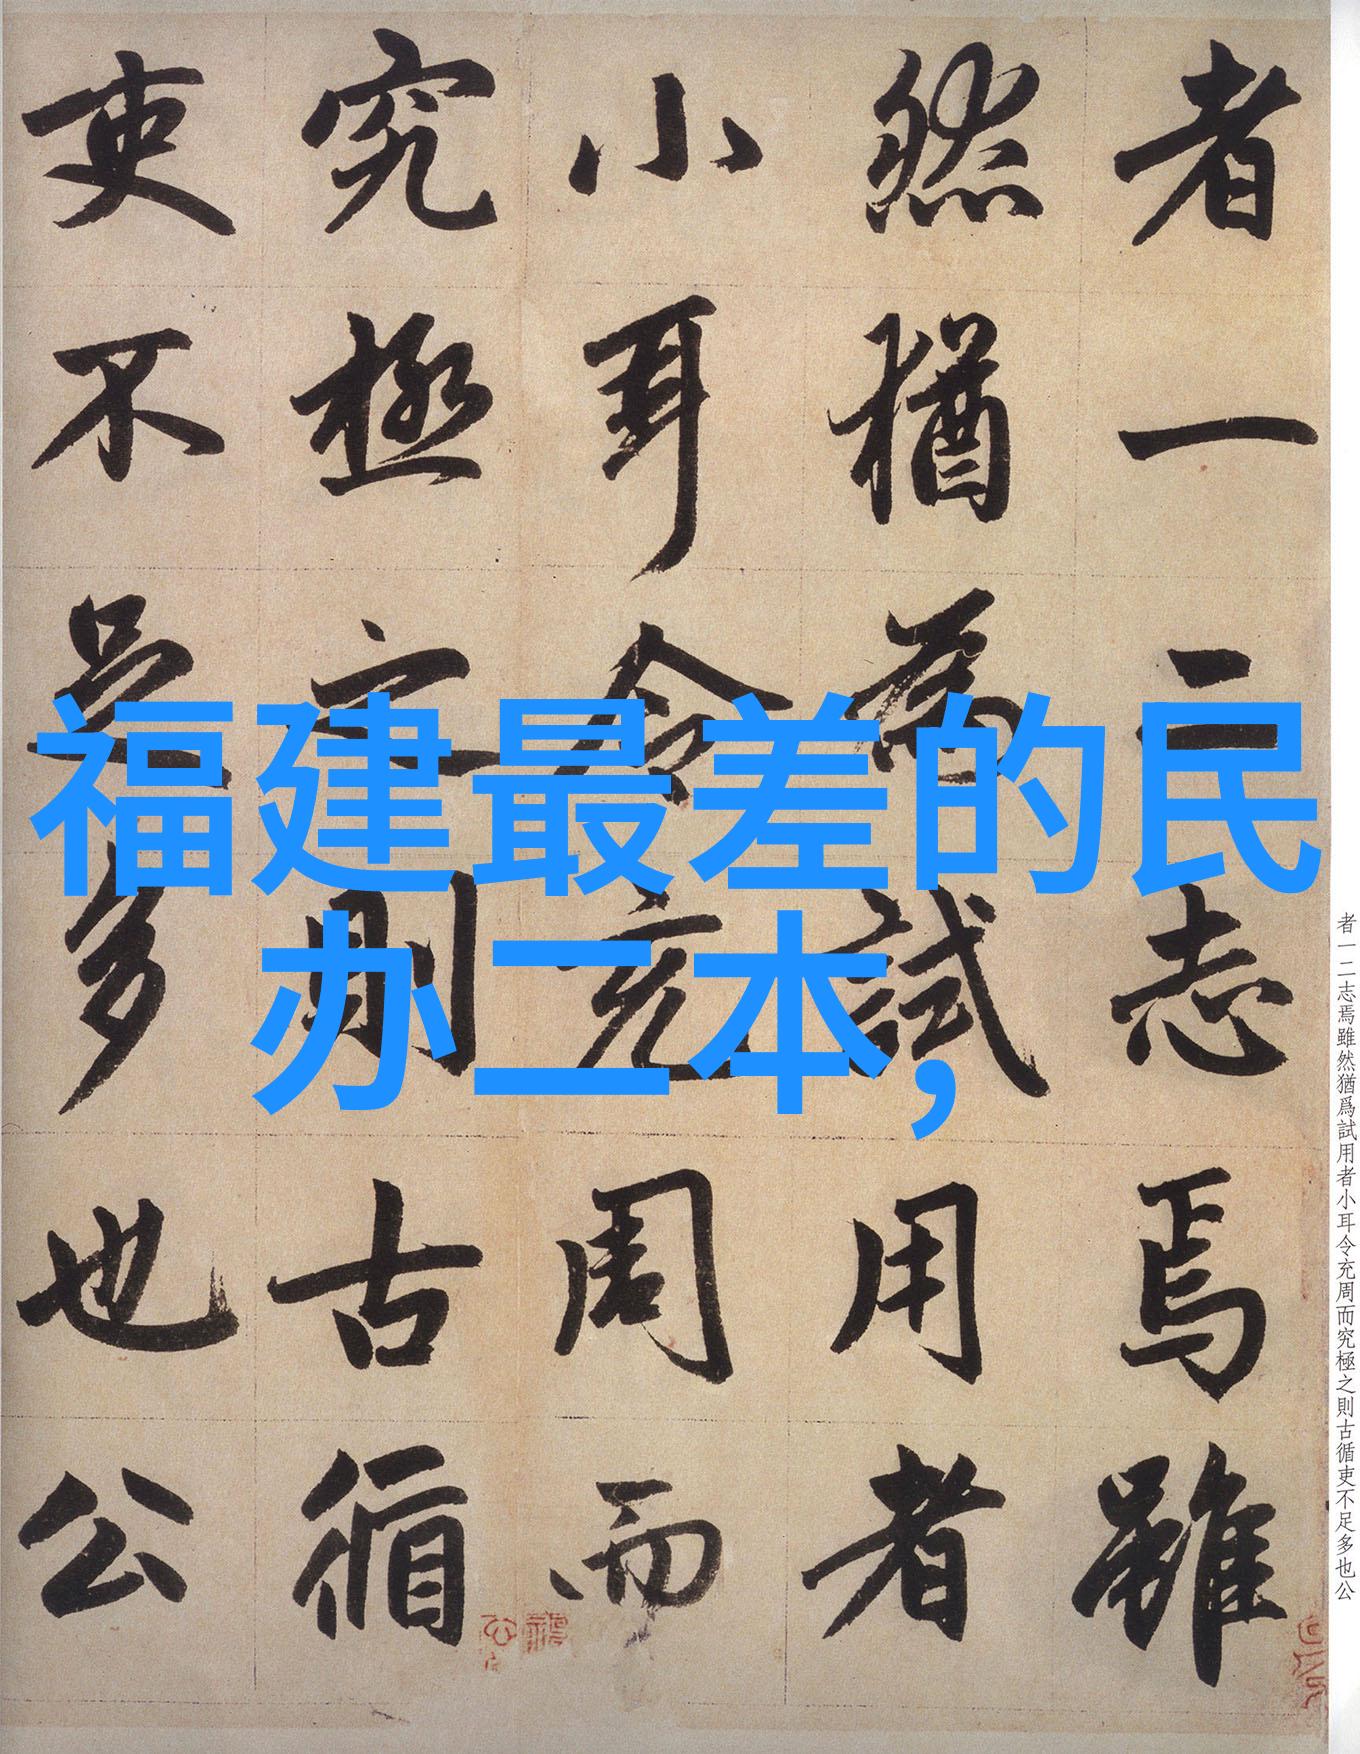 者一二志焉雖
然猶為試用者
小耳令充周而
究極之則古循
吏不足多也公
福建最差的民
办二本,
者一二志焉雖然猶爲試用者小耳令充周而究極之則古循吏不足多也公